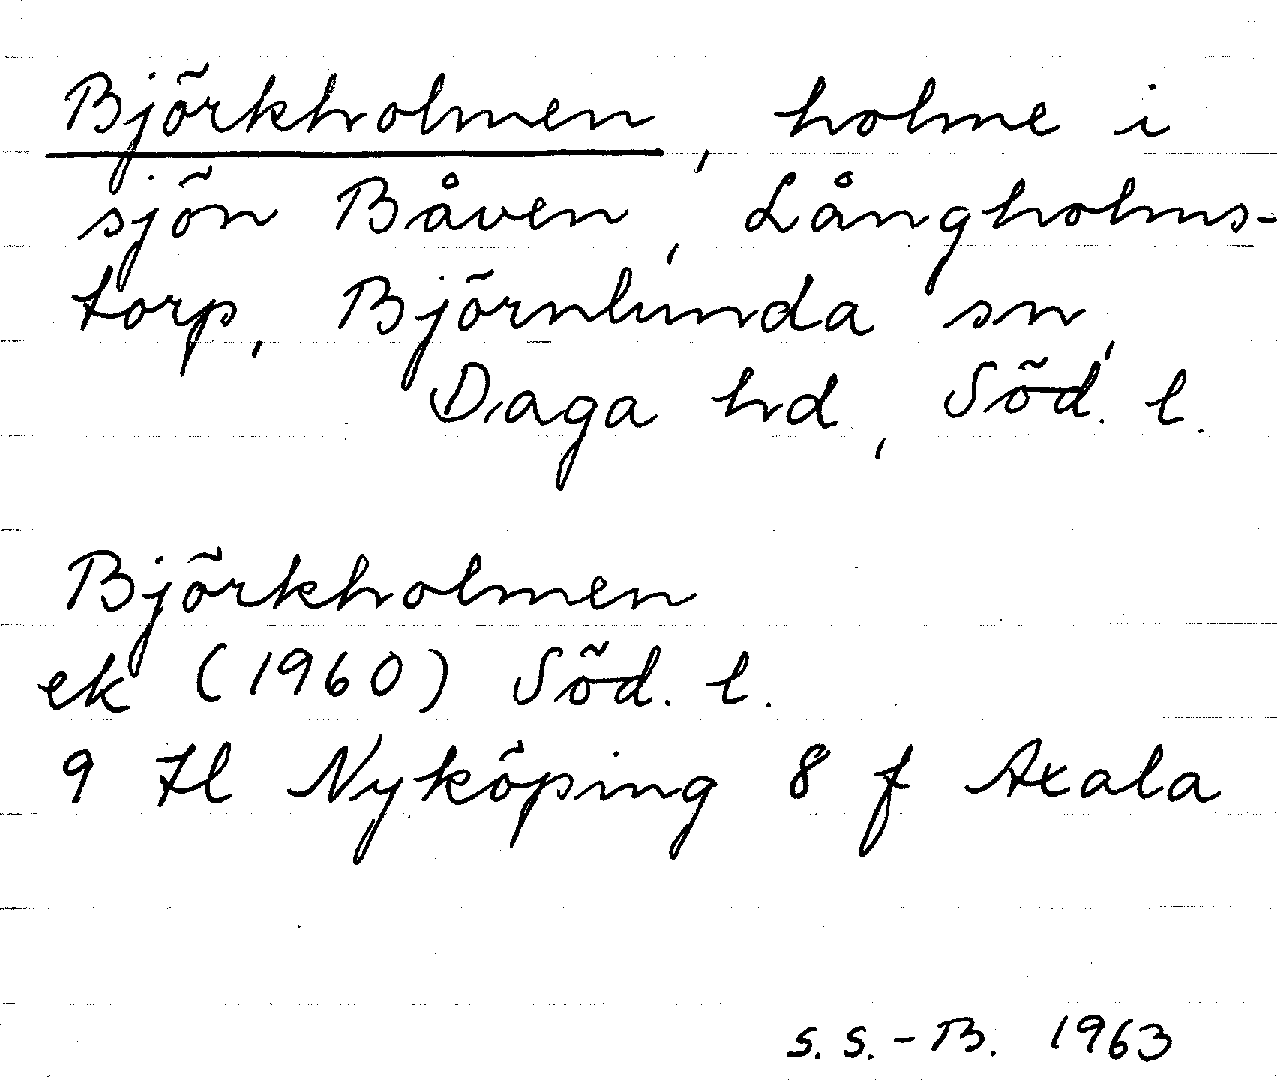 Björkholmen, holme i
sjön Båven, Långholms-
torp, Björnlunda sn,
Daga hd, Söd. l.
Björkholmen
ek (1960) Söd. l.
9 H Nyköping 8 f Axala
S. S.-B. 1963